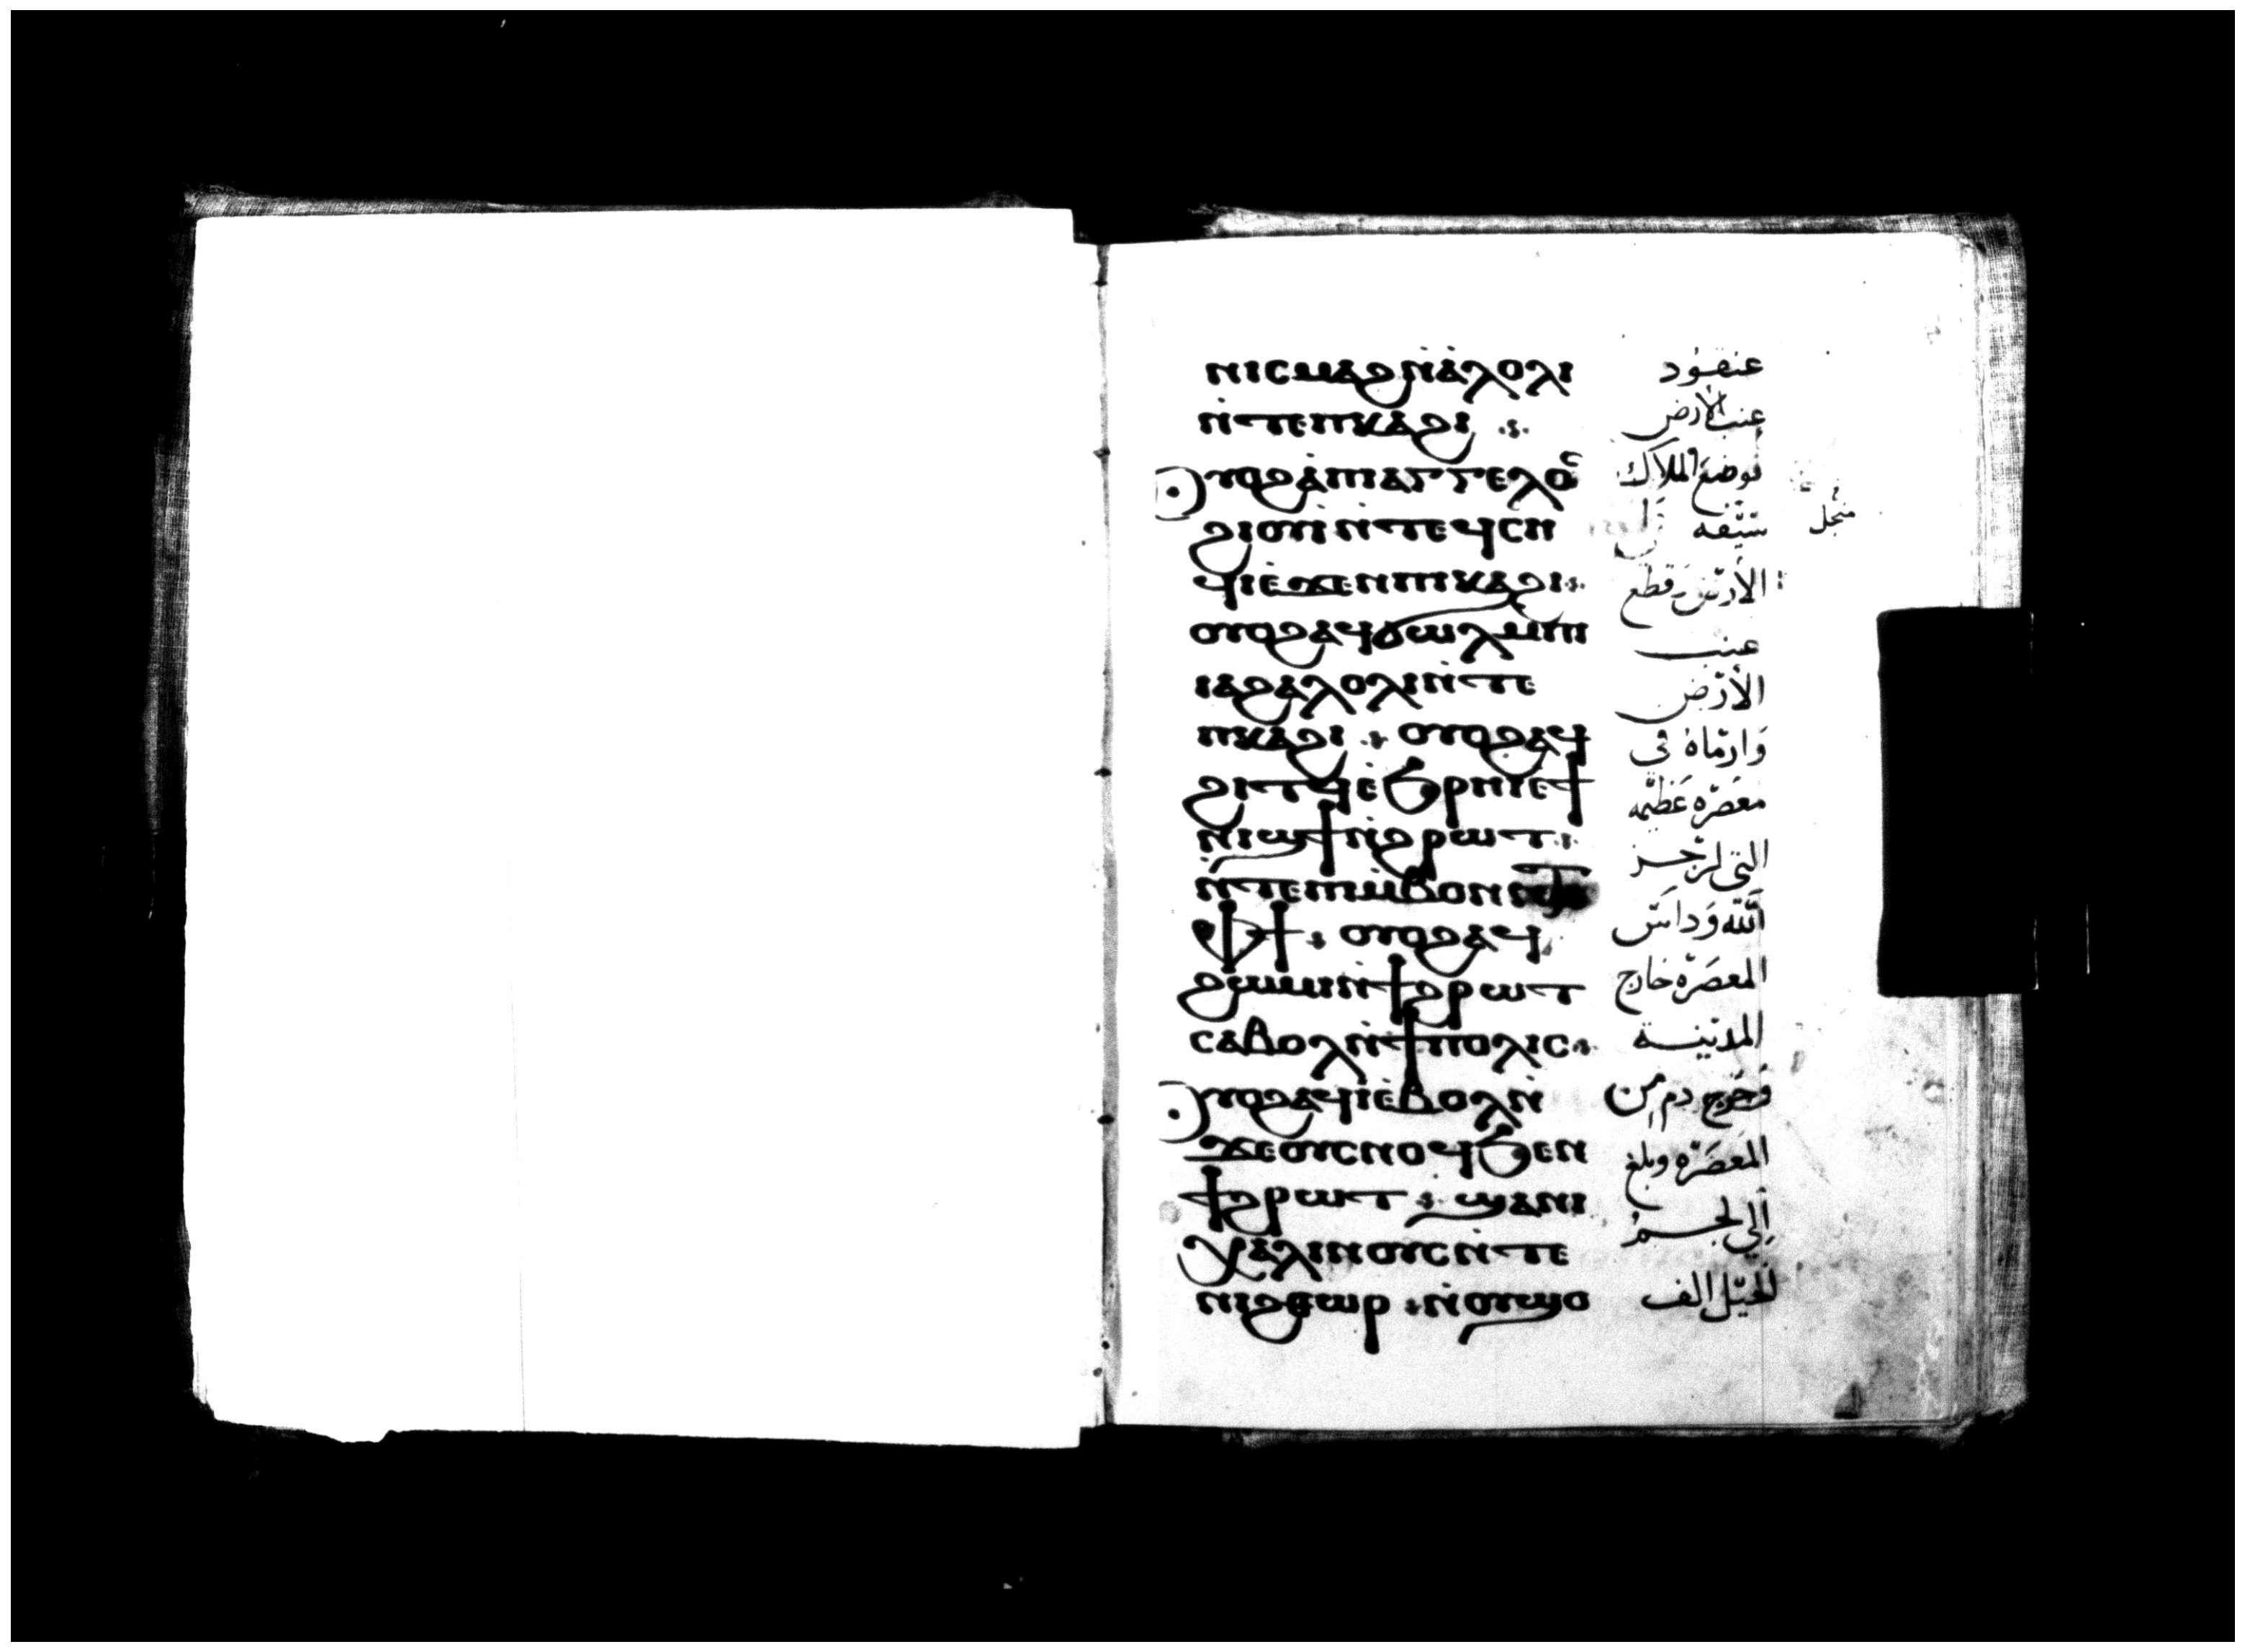 ⲛⲓⲥⲙⲁϩⲛ̀ⲁ̀ⲗⲟⲗⲓ
ⲛ̀ⲧⲉⲡⲕⲁϩⲓ
ⲟⲩⲟϩⲁ̀ⲡⲓⲁⲅⲅⲉⲗⲟⲥ
ϩⲓⲟⲩⲓ̀ⲛ̀ⲧⲉϥⲥⲏ
ϥⲓⲉ̀ϫⲉⲛⲡⲓⲕⲁϩⲓ
ⲟⲩⲟϩⲁϥϭⲱⲗⲙⲡ
ⲓⲁϩⲁⲗⲟⲗⲓⲛ̀ⲧⲉ
ⲡⲕⲁϩⲓ ⲟⲩⲟϩⲁϥ
ϩⲓⲧϥⲉ̀ϧⲣⲏⲓⲉϯ
ⲛⲓϣϯⲛ̀ϩⲣⲱⲧ
ⲛ̀ⲧⲉⲡⲓⲙⲃⲟⲛ
ⲫϯ ⲟⲩⲟϩⲁϥ
ϩⲱⲙⲓⲛ̀ϯϩⲣⲱⲧ
ⲥⲁⲃⲟⲗⲛ̀ϯⲡⲟⲗⲓⲥ
ⲟⲩⲟϩⲁϥⲓ̀ⲉⲃⲟⲗⲛ̀
ϫⲉⲟⲩⲥⲛⲟϥϧⲉⲛ
ϯϩⲣⲱⲧ ϣⲁⲛⲓ
ⲭⲁⲗⲓⲛⲟⲩⲥⲛ̀ⲧⲉ
ⲛⲓϩⲑⲱⲣ ⲛ̀ⲟⲩϣⲟ
عنقود
عنب الأرض
فوضع الملاك
سيفه
منجل
الأرض وقطع
عنب
الأرض
وارماه في
معصره عظيمه
التي لرجز
الله وداس
المعصره خارج
المدينة
فخرج دم من
المعصره وبلغ
إلي لجم
الخيل الف